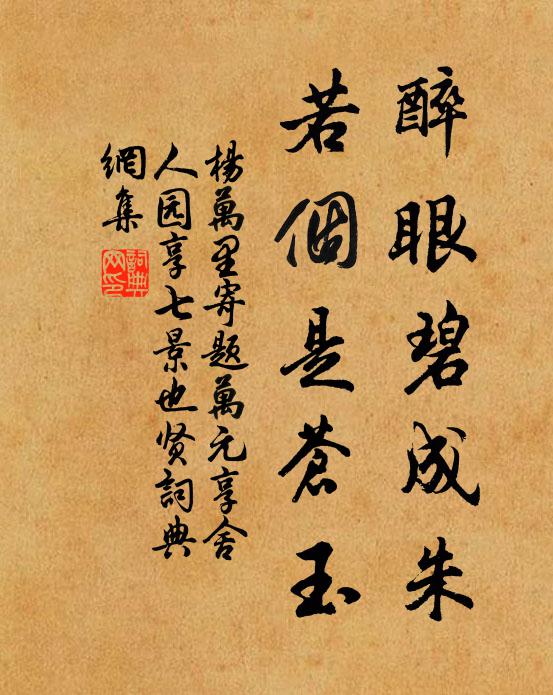 醉眼碧成朱
若個是蒼玉
楊萬里寄題萬元享舍
人园享七景也贤詞典
網集
詞典網印